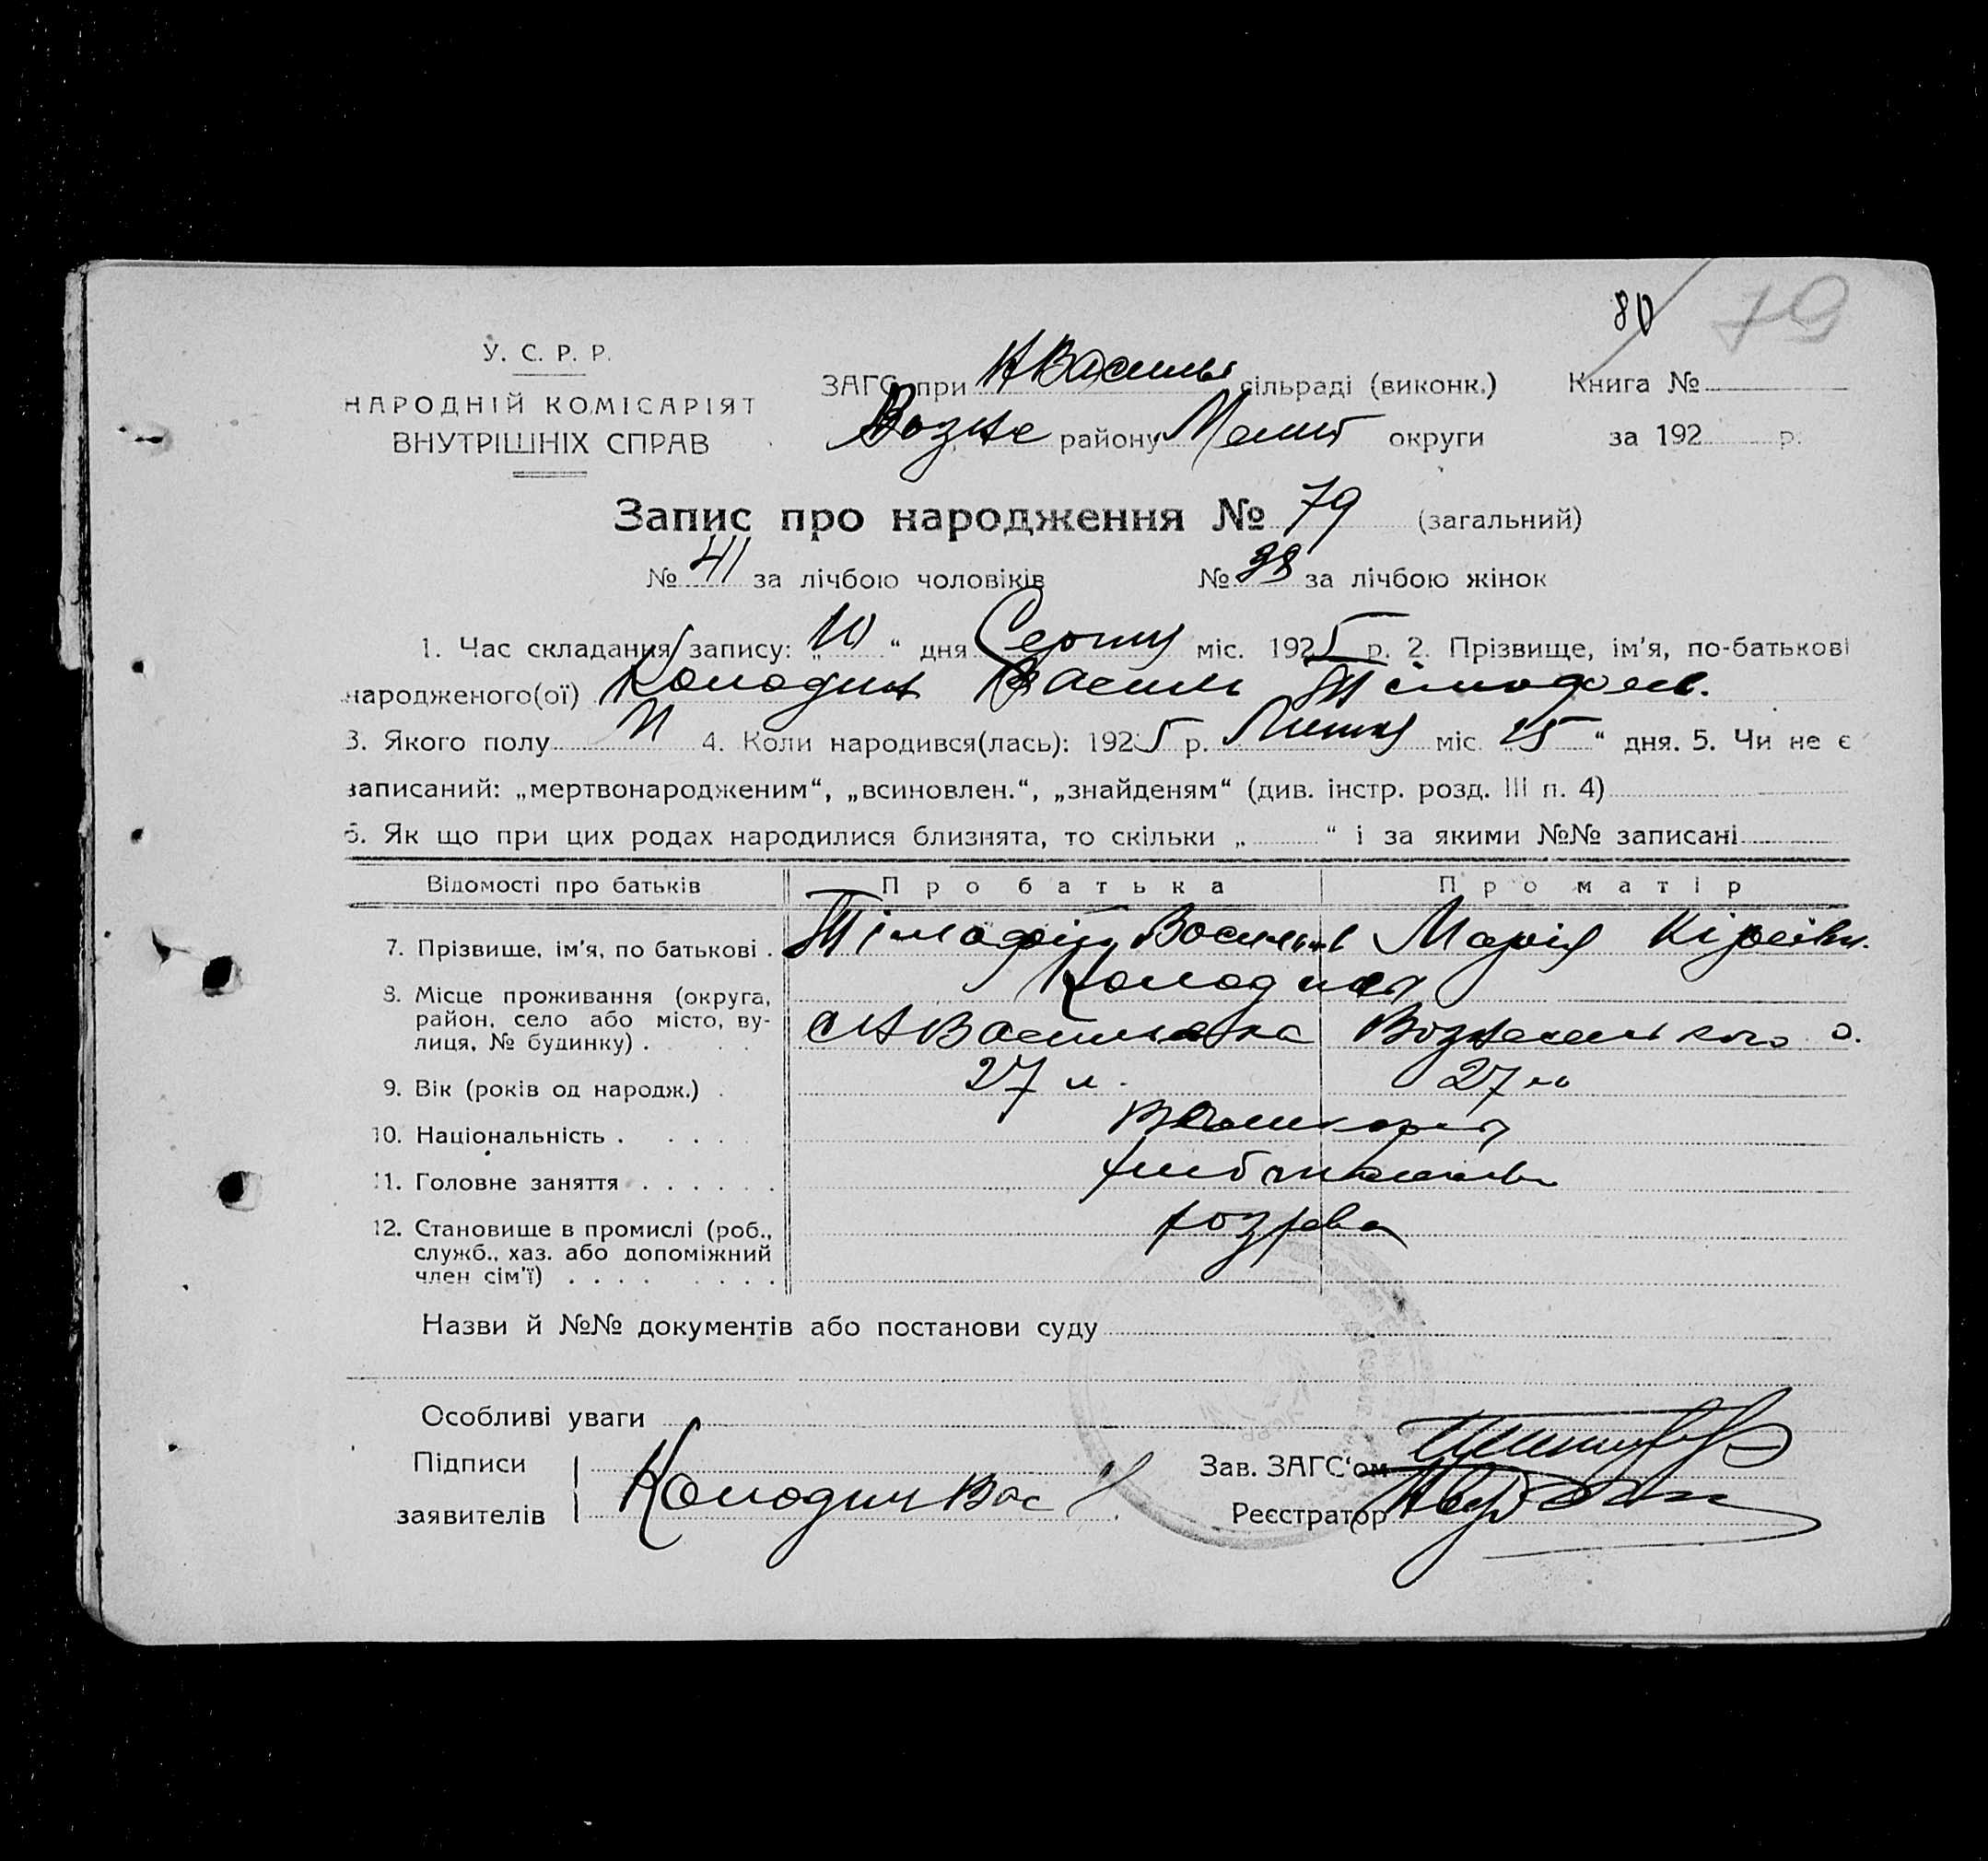 80 79
У. С. Р. Р.
НАРОДНІЙ КОМІСАРІЯТ
ВНУТРІШНІХ СПРАВ
ЗАГС при НВасилів сільраді (виконк.) Книга №
Возне району Меліт округи за 192 р.
Запис про народження № 79 (загальний)
№ 41 за лічбою чоловіків № 38 за лічбою жінок
1. Час складання запису: „10“ дня Серпня міс. 1925 р. 2. Прізвище, ім’я, по-батькові
народженого(ої) Колодин Василь Тімофеев.
3. Якого полу М 4. Коли народився(лась): 1925 р. Липня міс. „15“ дня. 5. Чи не є
записаний: „мертвонародженим“, „всиновлен.“, „знайденям“ (див. інстр. розд. III п. 4)
6. Як що при цих родах народилися близнята, то скільки „ “ і за якими №№ записані
Відомості про батьків Про батька Про матір
7. Прізвище, ім’я, по батькові . Тімофій Васильов Марія Кірсівн.
Колодин
8. Місце проживання (округа,
район, село або місто, ву-
лиця, № будинку) . с НВасилівка Вознесенського
9. Вік (років од народж.) . 27 л. 27 л
10. Національність .
11. Головне заняття хліборобство
12. Становище в промислі (роб.,
служб., хаз. або допоміжний
член сім’ї)
Назви й №№ документів або постанови суду
Особливі уваги
Підписи
заявителів Колодин Вас
Зав. ЗАГС‘ом
Реєстратор